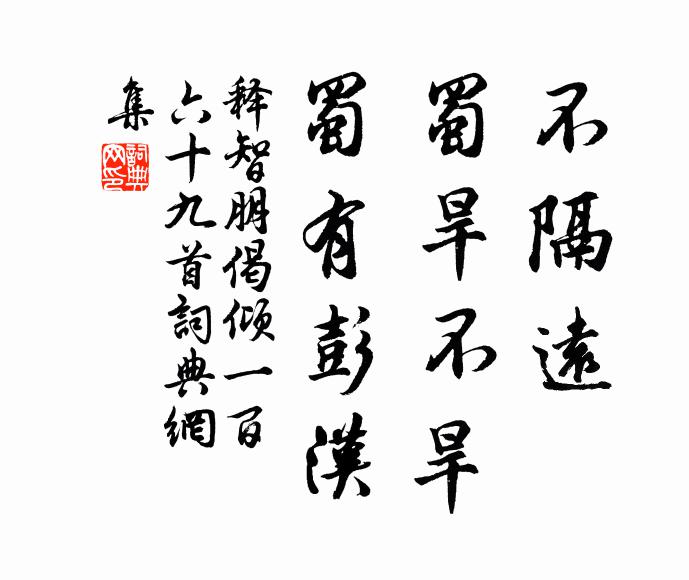 不隔遠
蜀旱不旱
蜀有彭漢
释智朋偈倾一百
六十九首詞典網
集
詞典
网印